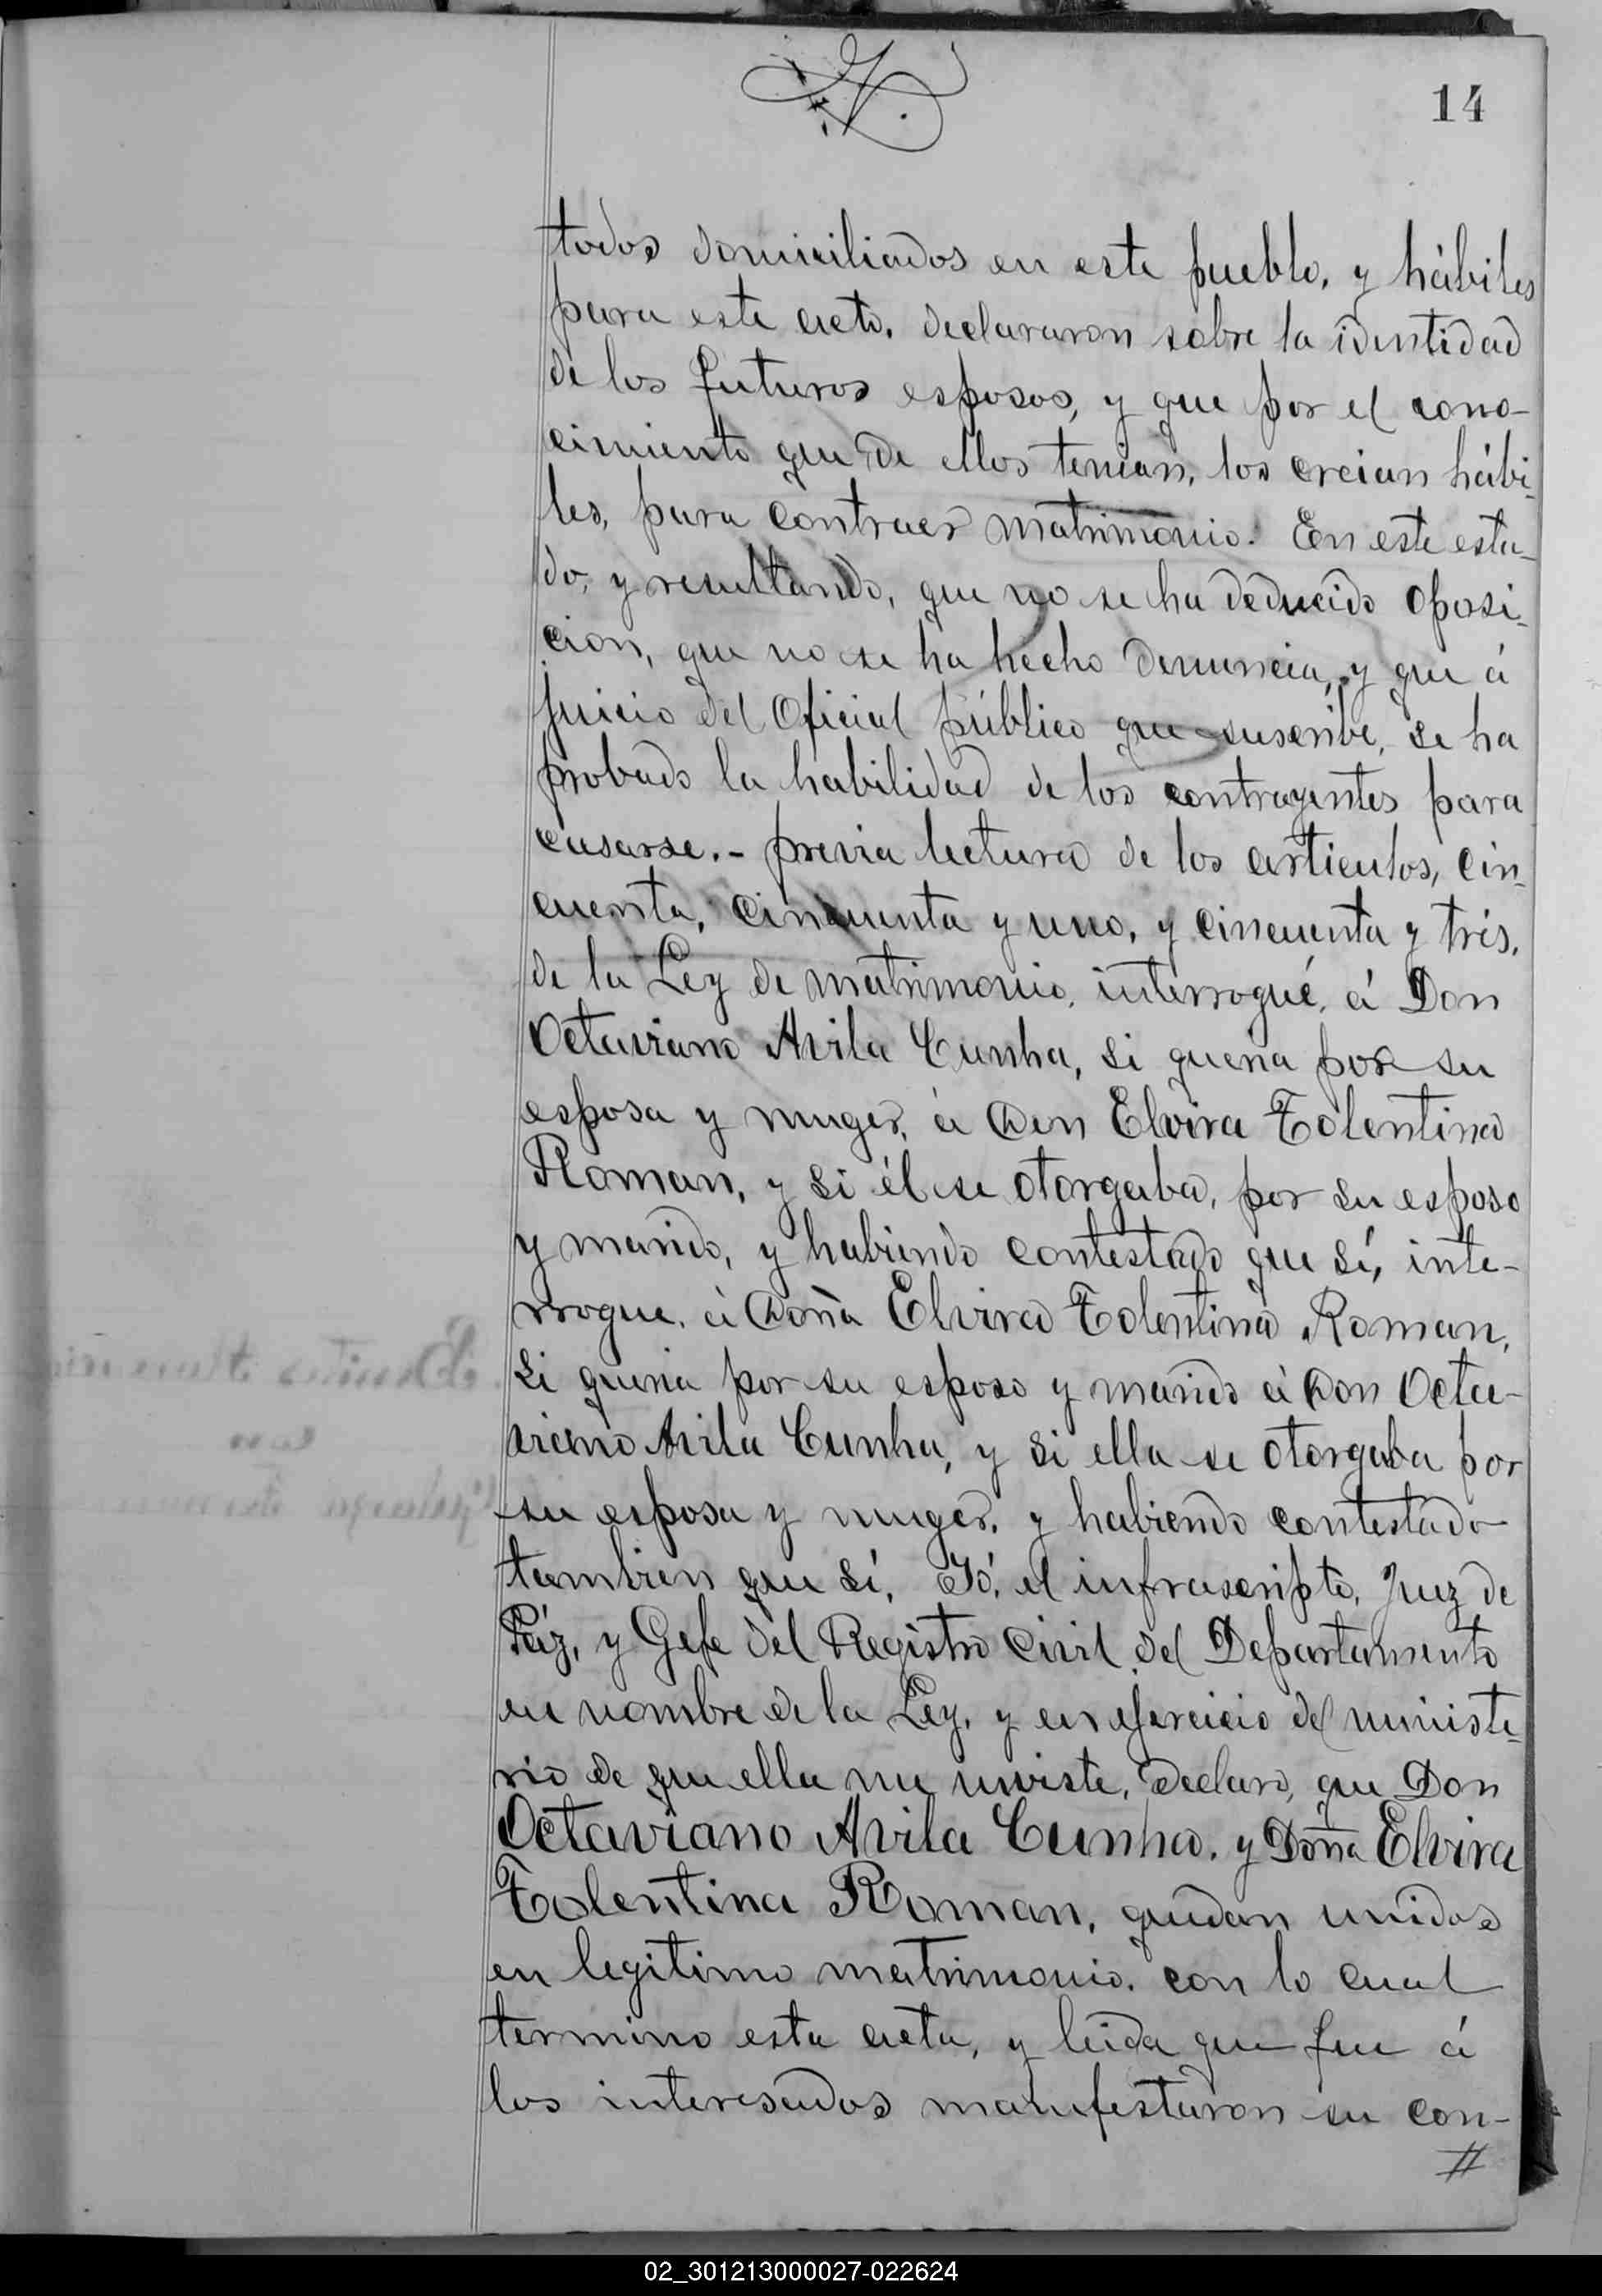 14
todos domiciliados en este pueblo, y hábiles
para este acto, declararon sobre la identidad
de los futuros esposos, y que por el cono-
cimiento que de ellos tenian, los creian hábi-
les, para contraer matrimonio. En este esta-
do, y resultando, que no se ha deducido oposi-
cion, que no se ha hecho denuncia, y que á
juicio del Oficial público que suscribe, se ha
probado la habilidad de los contrayentes para
casarse.- previa lectura de los artículos, cin-
cuenta, cincuenta y uno, y cincuenta y trés,
de la Ley de matrimonio, interrogué, á Don
Octaviano Avila Cunha, si queria por su
esposa y muger, á Don Elvira Tolentina
Roman, y si él se otorgaba, por su esposo
y marido, y habiendo contestado que sí, inte-
rrogue, á Doña Elvira Tolentina Roman,
si queria por su esposo y marido á Don Octa-
viano Avila Cunha, y si ella se otorgaba por
su esposa y muger, y habiendo contestado
tambien que sí, Yó, el infrascripto, Juez de
Páz, y Gefe del Registro Civil del Departamento
en nombre de la Ley, y en ejercicio del ministe-
rio de que ella me inviste, declaro, que Don
Octaviano Avila Cunha, y Doña Elvira
Tolentina Roman, quedan unidos
en legitimo matrimonio, con lo cual
termino esta acta, y leida que fue á
los interesados manifestaron su con-
//
02_301213000027-022624